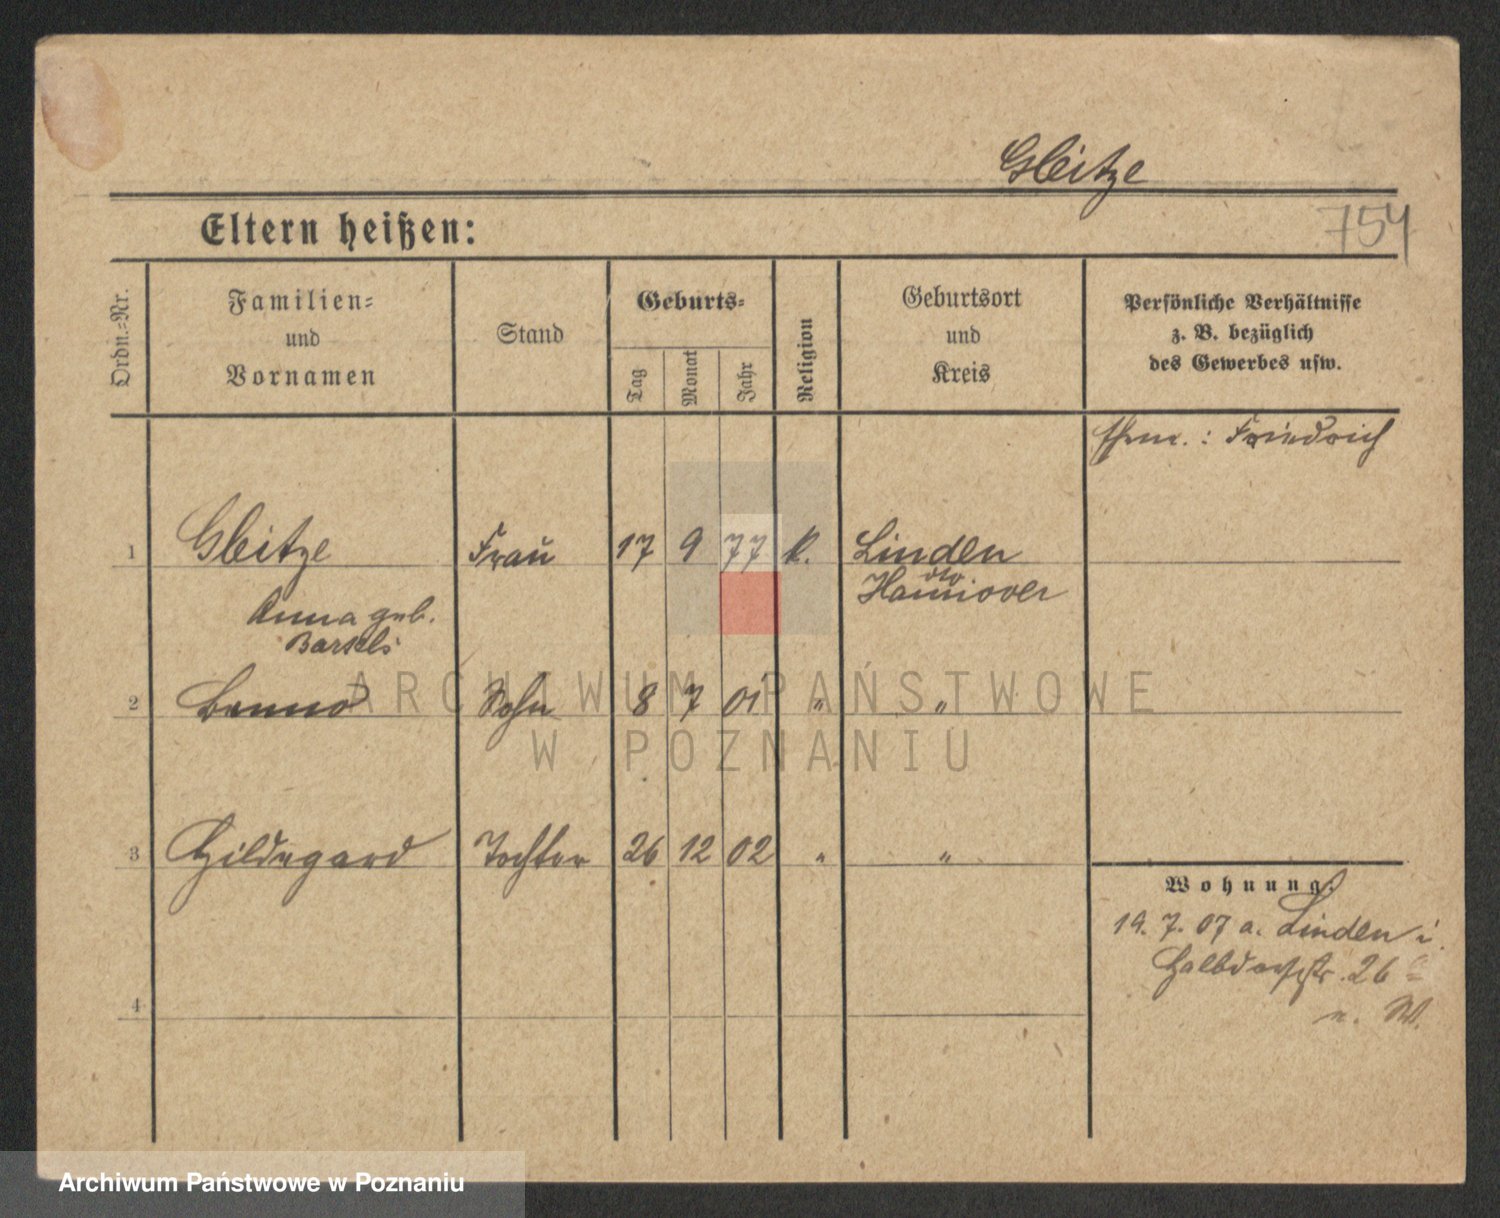 Gleitze
754
Eltern heißen:
Ordn.=Nr.
Familien=
und
Vornamen
Stand
Geburts=
Tag
Monat
Jahr
Religion
Geburtsort
und
Kreis
Persönliche Verhältnisse
z. B. bezüglich
des Gewerbes usw.
Ehem.: Friedrich
1 Gleitze Frau 17 9 77 k. Linden
dto
Hannover
Anna geb.
Bartels
2 Benno Sohn 8 7 01 " "
3 Hildegard Tochter 26 12 02 " "
Wohnung:
19. 7. 07 a. Linden i.
26
n. W.
4
ARCHIWUM PAŃSTWOWE
W POZNANIU
Archiwum Państwowe w Poznaniu